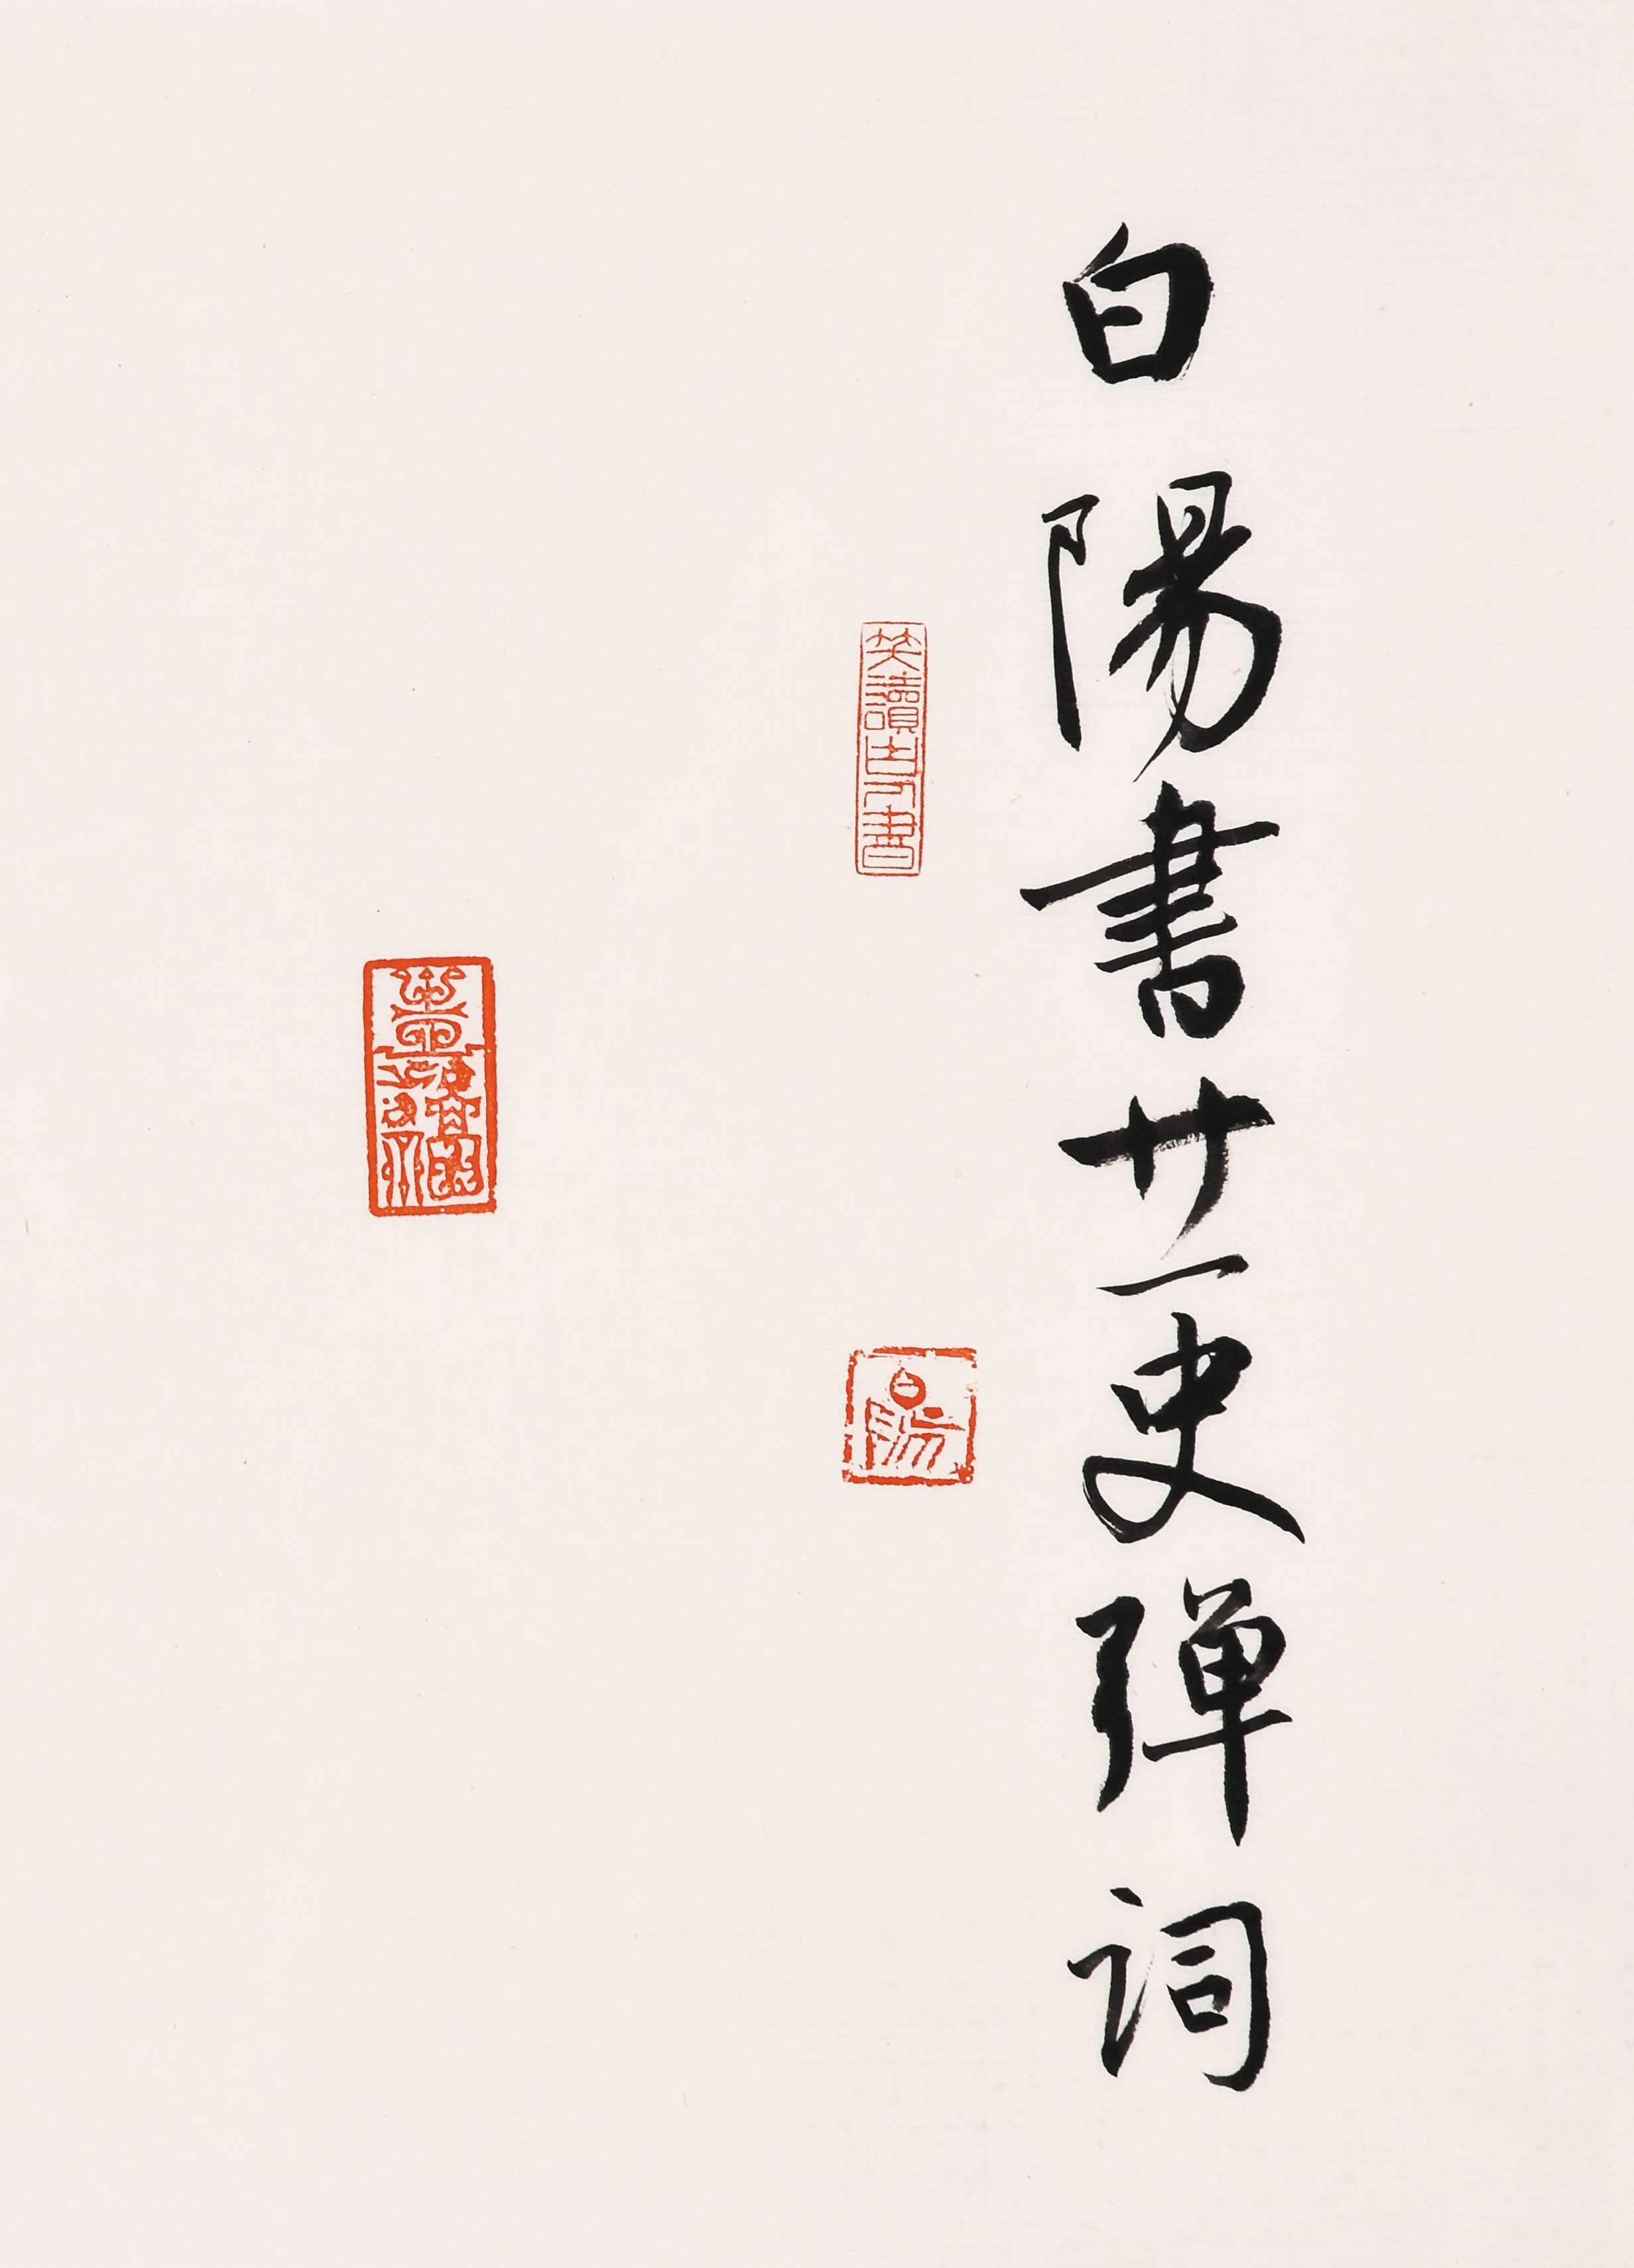 白陽書廿一史弹词
笑讀古人書
白陽